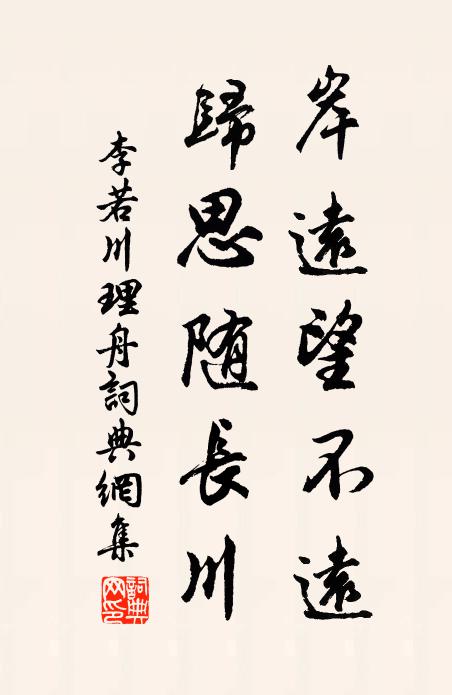 岸遠望不遠
歸思随長川
李若川理舟詞典網集
詞典网印